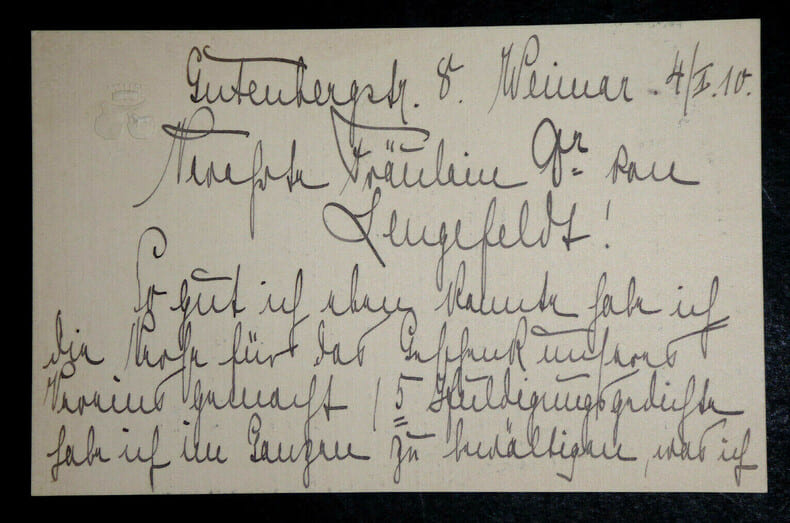 Gutenbergstr. 8. Weimar. 4/I.10.
Verehrte Fräulein Dr von
Lengefeldt!
So gut ich eben konnte habe ich
die Verse für das Geschenk unseres
Vereins gemacht (5 Huldigungsgedichte
habe ich im Ganzen zu bewältigen, was ich